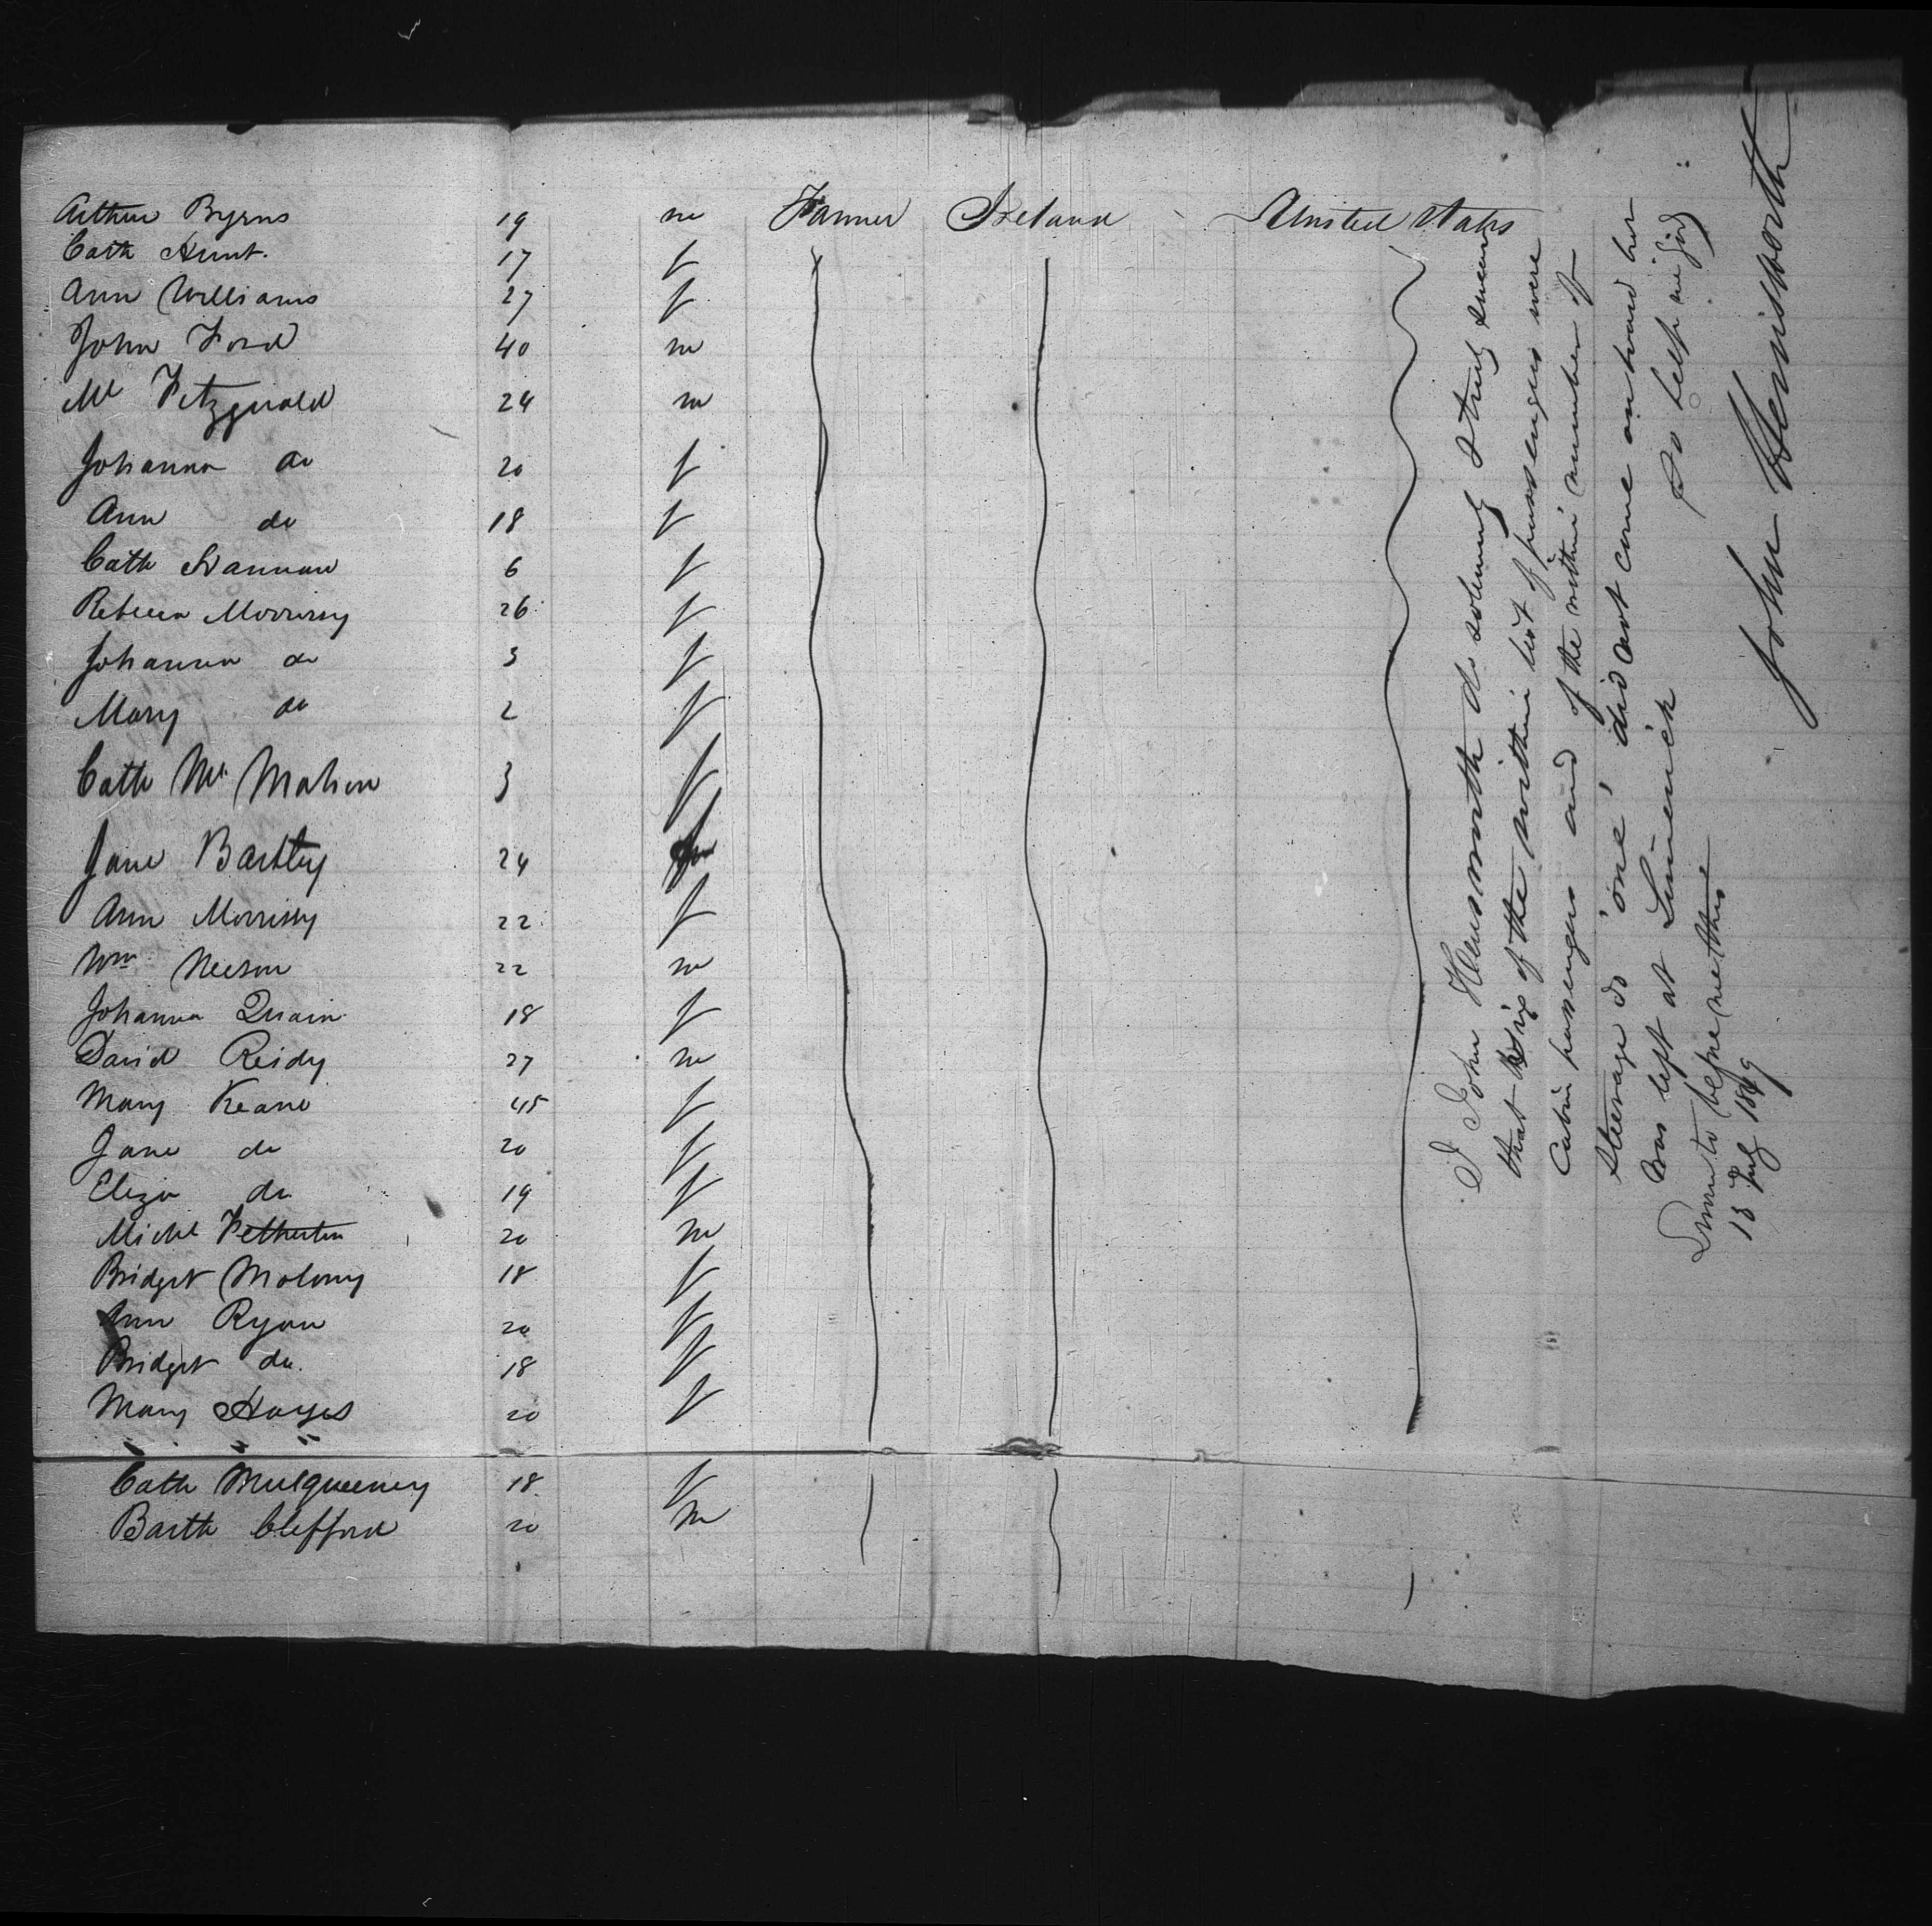 Arthur Byrns 19 m Farmer Ireland United States
Cath Hunt. 17 f
Ann Williams 27 f
John Ford 40 m
Ml Fitzgerald 24 m
Johanna do 20 f
Ann do 18 f
Cath Hannan 6 f
Rebecca Morrissy 26 f
Johanna do 3 f
Mary do 2 f
Cath Mc Mahon 3 f
Jane Bartley 24
Ann Morrissy 22 f
Wm Neeson 22 m
Johanna Quain 18 f
David Reidy 27 m
Mary Keane 45 f
Jane do 20 f
Eliza do 19 f
Michl Fetherton 20 m
Bridget Molony 18 f
Ann Ryan 20 f
Bridget do. 18 f
Mary Hayes 20 f
" " "
Cath Mulqueeney 18 f
Barth Clifford 20 m
I John Hemsworth do solemnly & truly swear
that six of the within list of passengers were
Cabin passengers and of the within number of
Steerage do 'one' did not come on board but
was left at Limerick So help me God
Sworn to before me this
18 July 1849
John Hemsworth